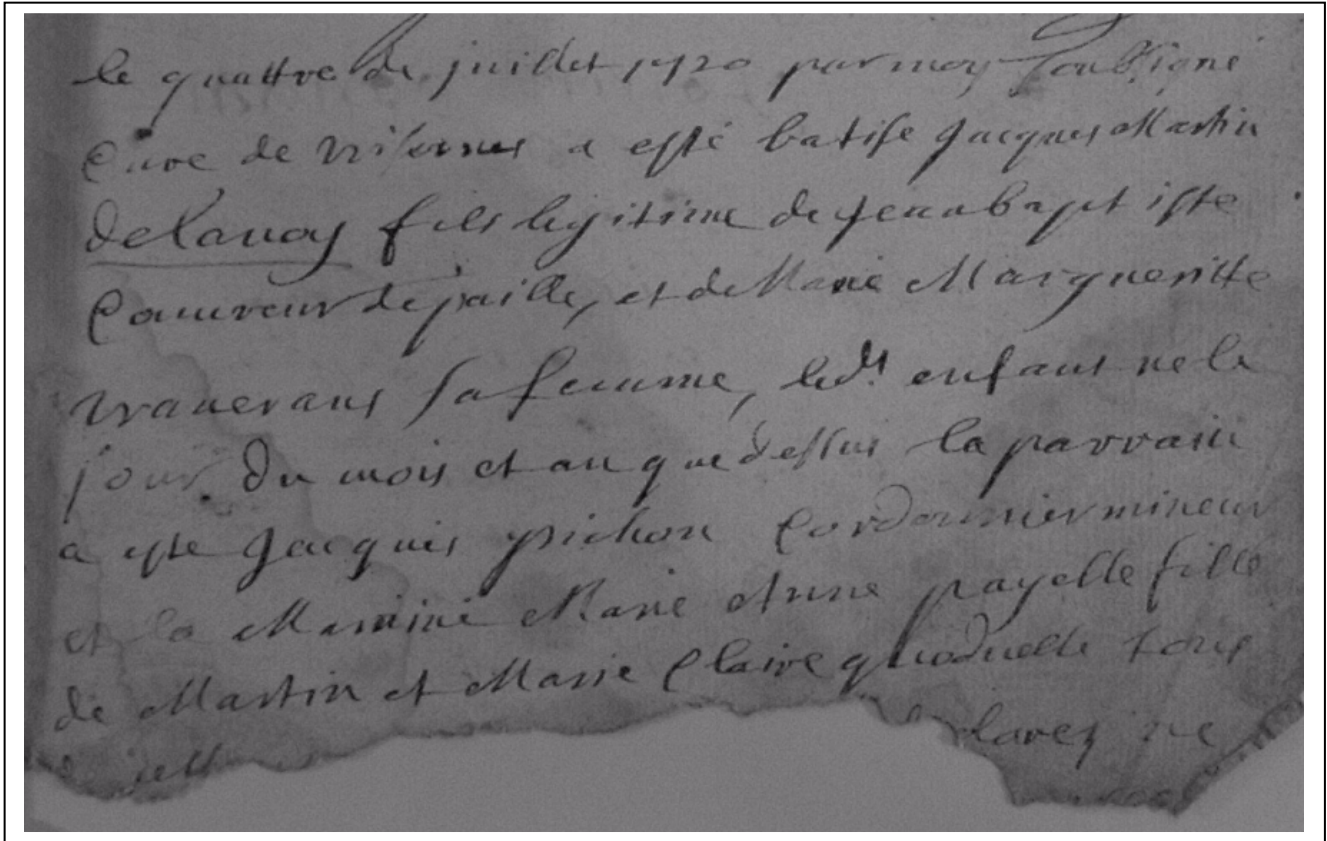 le quattre de juillet 1720 par moy soubsigné
Curé de Wisernes a esté batisé Jacques Martin
delanoy fils legitime de jean baptiste
Couvreur de paille, et de Marie Margueritte
sa femme, led.t enfant né le
jour du mois et an que dessus la parrain
a este Jacques pichon Cordonnier mineur
et la Marinne Marie Anne payelle fille
de Martin et Marie Claire tous
declarez ne